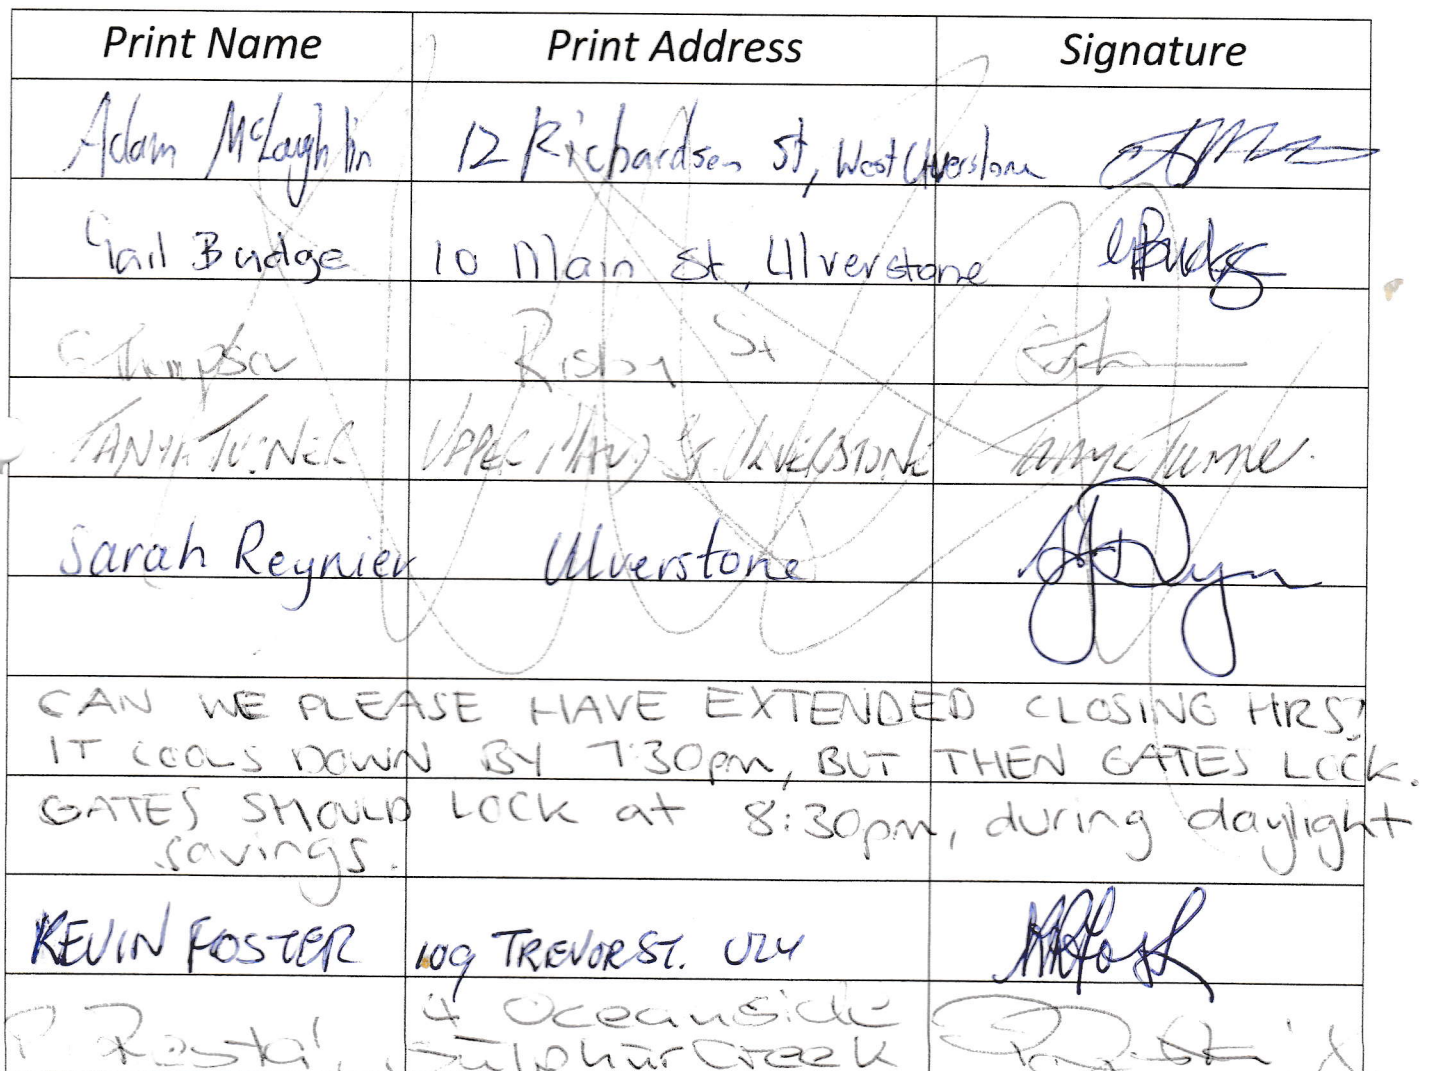 Print Name Print Address Signature
Adam McLaughlin 12 Richardson St, West Ulverstone
Gail Budge 10 Main St, Ulverstone GBudge
Risby St
TANYA TURNER UPPER MAUD St ULVERSTONE Tanya Turner.
Sarah Reynier Ulverstone
CAN WE PLEASE HAVE EXTENDED CLOSING HRS?
IT COOLS DOWN BY 7:30pm, BUT THEN GATES LOCK.
GATES SHOULD LOCK at 8:30pm, during daylight
savings.
KEVIN FOSTER 109 TREVOR ST. ULV
4 Oceanside
P. Sulphur Creek